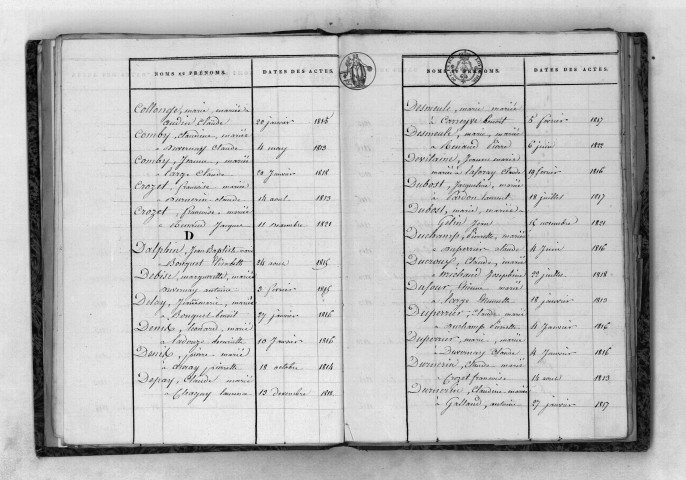 NOMS ET PRÉNOMS. DATES DES ACTES.
Collonge, marie, mariée à
Claude 20 janvier 1815
Comby, Claudine, mariée
à Duvernay Claude 4 may 1813
Comby, Jeanne, mariée
à Large Claude 20 Janvier 1818
Crozet, françoise, mariée
à Claude 14 aout 1813
Crozet, françoise, mariée
à Renaud Jacques 11 novembre 1821
D
Delphin, Jean Baptiste
à Bouquet 24 1815
Debise, marguerite, mariée
Duvernay antoine 3 février 1815
Delay, mariée
à Bouquet benoit 27 janvier 1816
Denis, léonard, marié
à Ladouze 10 Janvier 1816
Denis, marié
à pierrette 18 octobre 1814
Depay, Claude marié
à Chagny 13 decembre 1818
NOMS ET PRÉNOMS. DATES DES ACTES.
Desmeule, marie mariée
à benoit 5 février 1817
Desmeule, marie, mariée
à Renaud Pierre 6 juin 1822
Devilaine, Jeanne marie
mariée à Laforay Claude 14 février 1816
Dubost, Jacqueline, mariée
à Lardon benoit 18 juillet 1817
Dubost, marie, mariée à
Gelin Jean 15 novembre 1821
Duchamp, Pierrette, mariée
à Duperrier Claude 4 Juin 1816
Ducroux, Claude, marié
à michaud Josephine 22 juillet 1818
Dufour, Etienne, marié
à Large 18 janvier 1813
Duperrier, Claude marié
à Duchamp Pierrette 4 Janvier 1816
marie, mariée
à Duvernay Claude 4 Janvier 1816
Claude, marié
à Crozet françoise 14 aout 1813
Claudine mariée
à Galland, antoine 27 janvier 1817